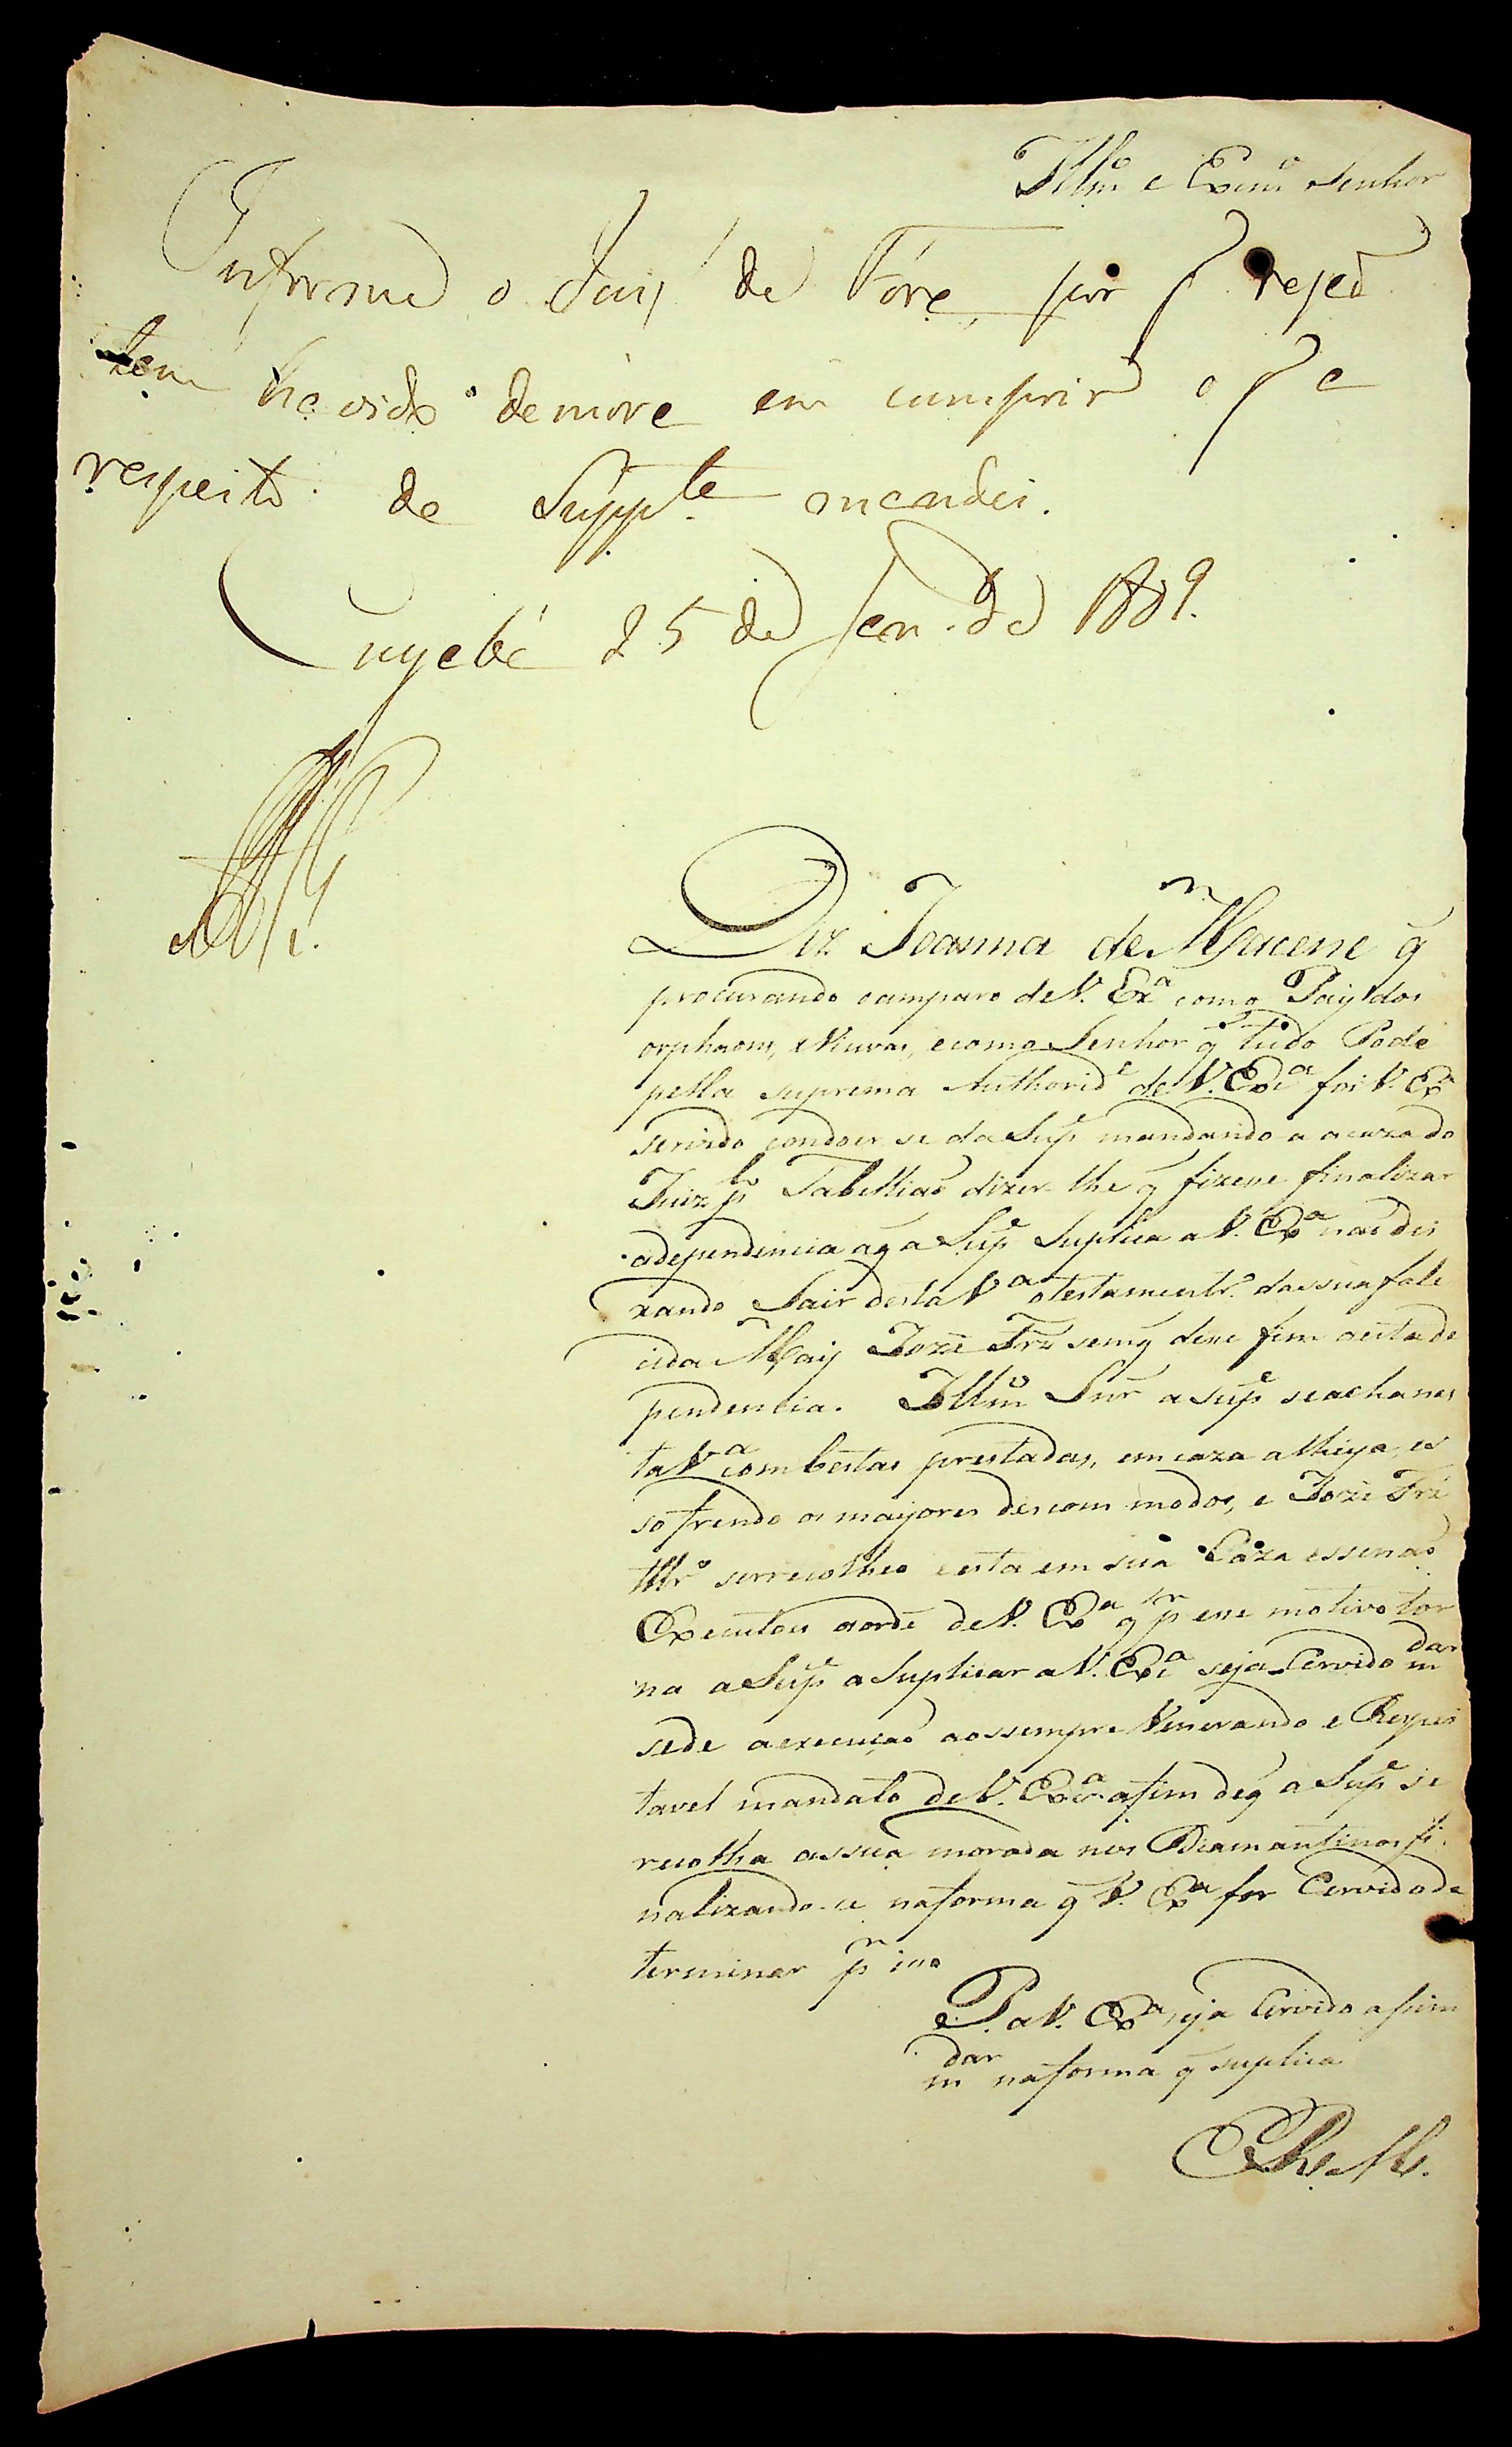 Illm.º e Exmº Senhor
Informe o Juiz de Fóra, por q.
tem havido demora em cumprir o q a
respeito da Supp.te mandei.
Cuyabá 25 de Jan. de 1809.
Diz Joanna de q̃
procurando oamparo deV. Exª como Pay dos
orphaons, eViuvas, ecomo Senhor q̃ tudo Pode
pella suprema Authorid.e deV. Exª foi V. Exª
servido condoer se da Sup.e mandando a acaza do
Juiz p.lo Tabelliaõ dizer-lhe q̃ fizese finalizar
adependencia aq̃ a Sup.e Suplica aV. Exª naõ dei
xando Sair desta Vª otestamentrº dassua fale
cida May Jozé Frz semq̃ dese fim aesta de
pendencia. Illmº Snr̃ a Sup.e seachanes
ta Vª combestas prestadas, em caza alheya, es
sofrendo os mayores descommodos, e Jozé Frz
serrecolheo eesta em sua Caza essenaõ
Executou aorde deV. Exª q̃ p.r ese motivo tor
na aSup.e aSuplicar aV. Exª seja Cervido m.dar
sede aexecuçaõ aossempre Venerando e Respei
tavel mandato deV. Exª afim deq̃ a Sup.e se
recolha assua morada nos Diamantinos fi
nalizando-se naforma q̃ V. Exª for Cervido de
terminar p.r iso
P. aV. Exª seja Cervido asim
m.dar naforma q̃ suplica
E. R. M.